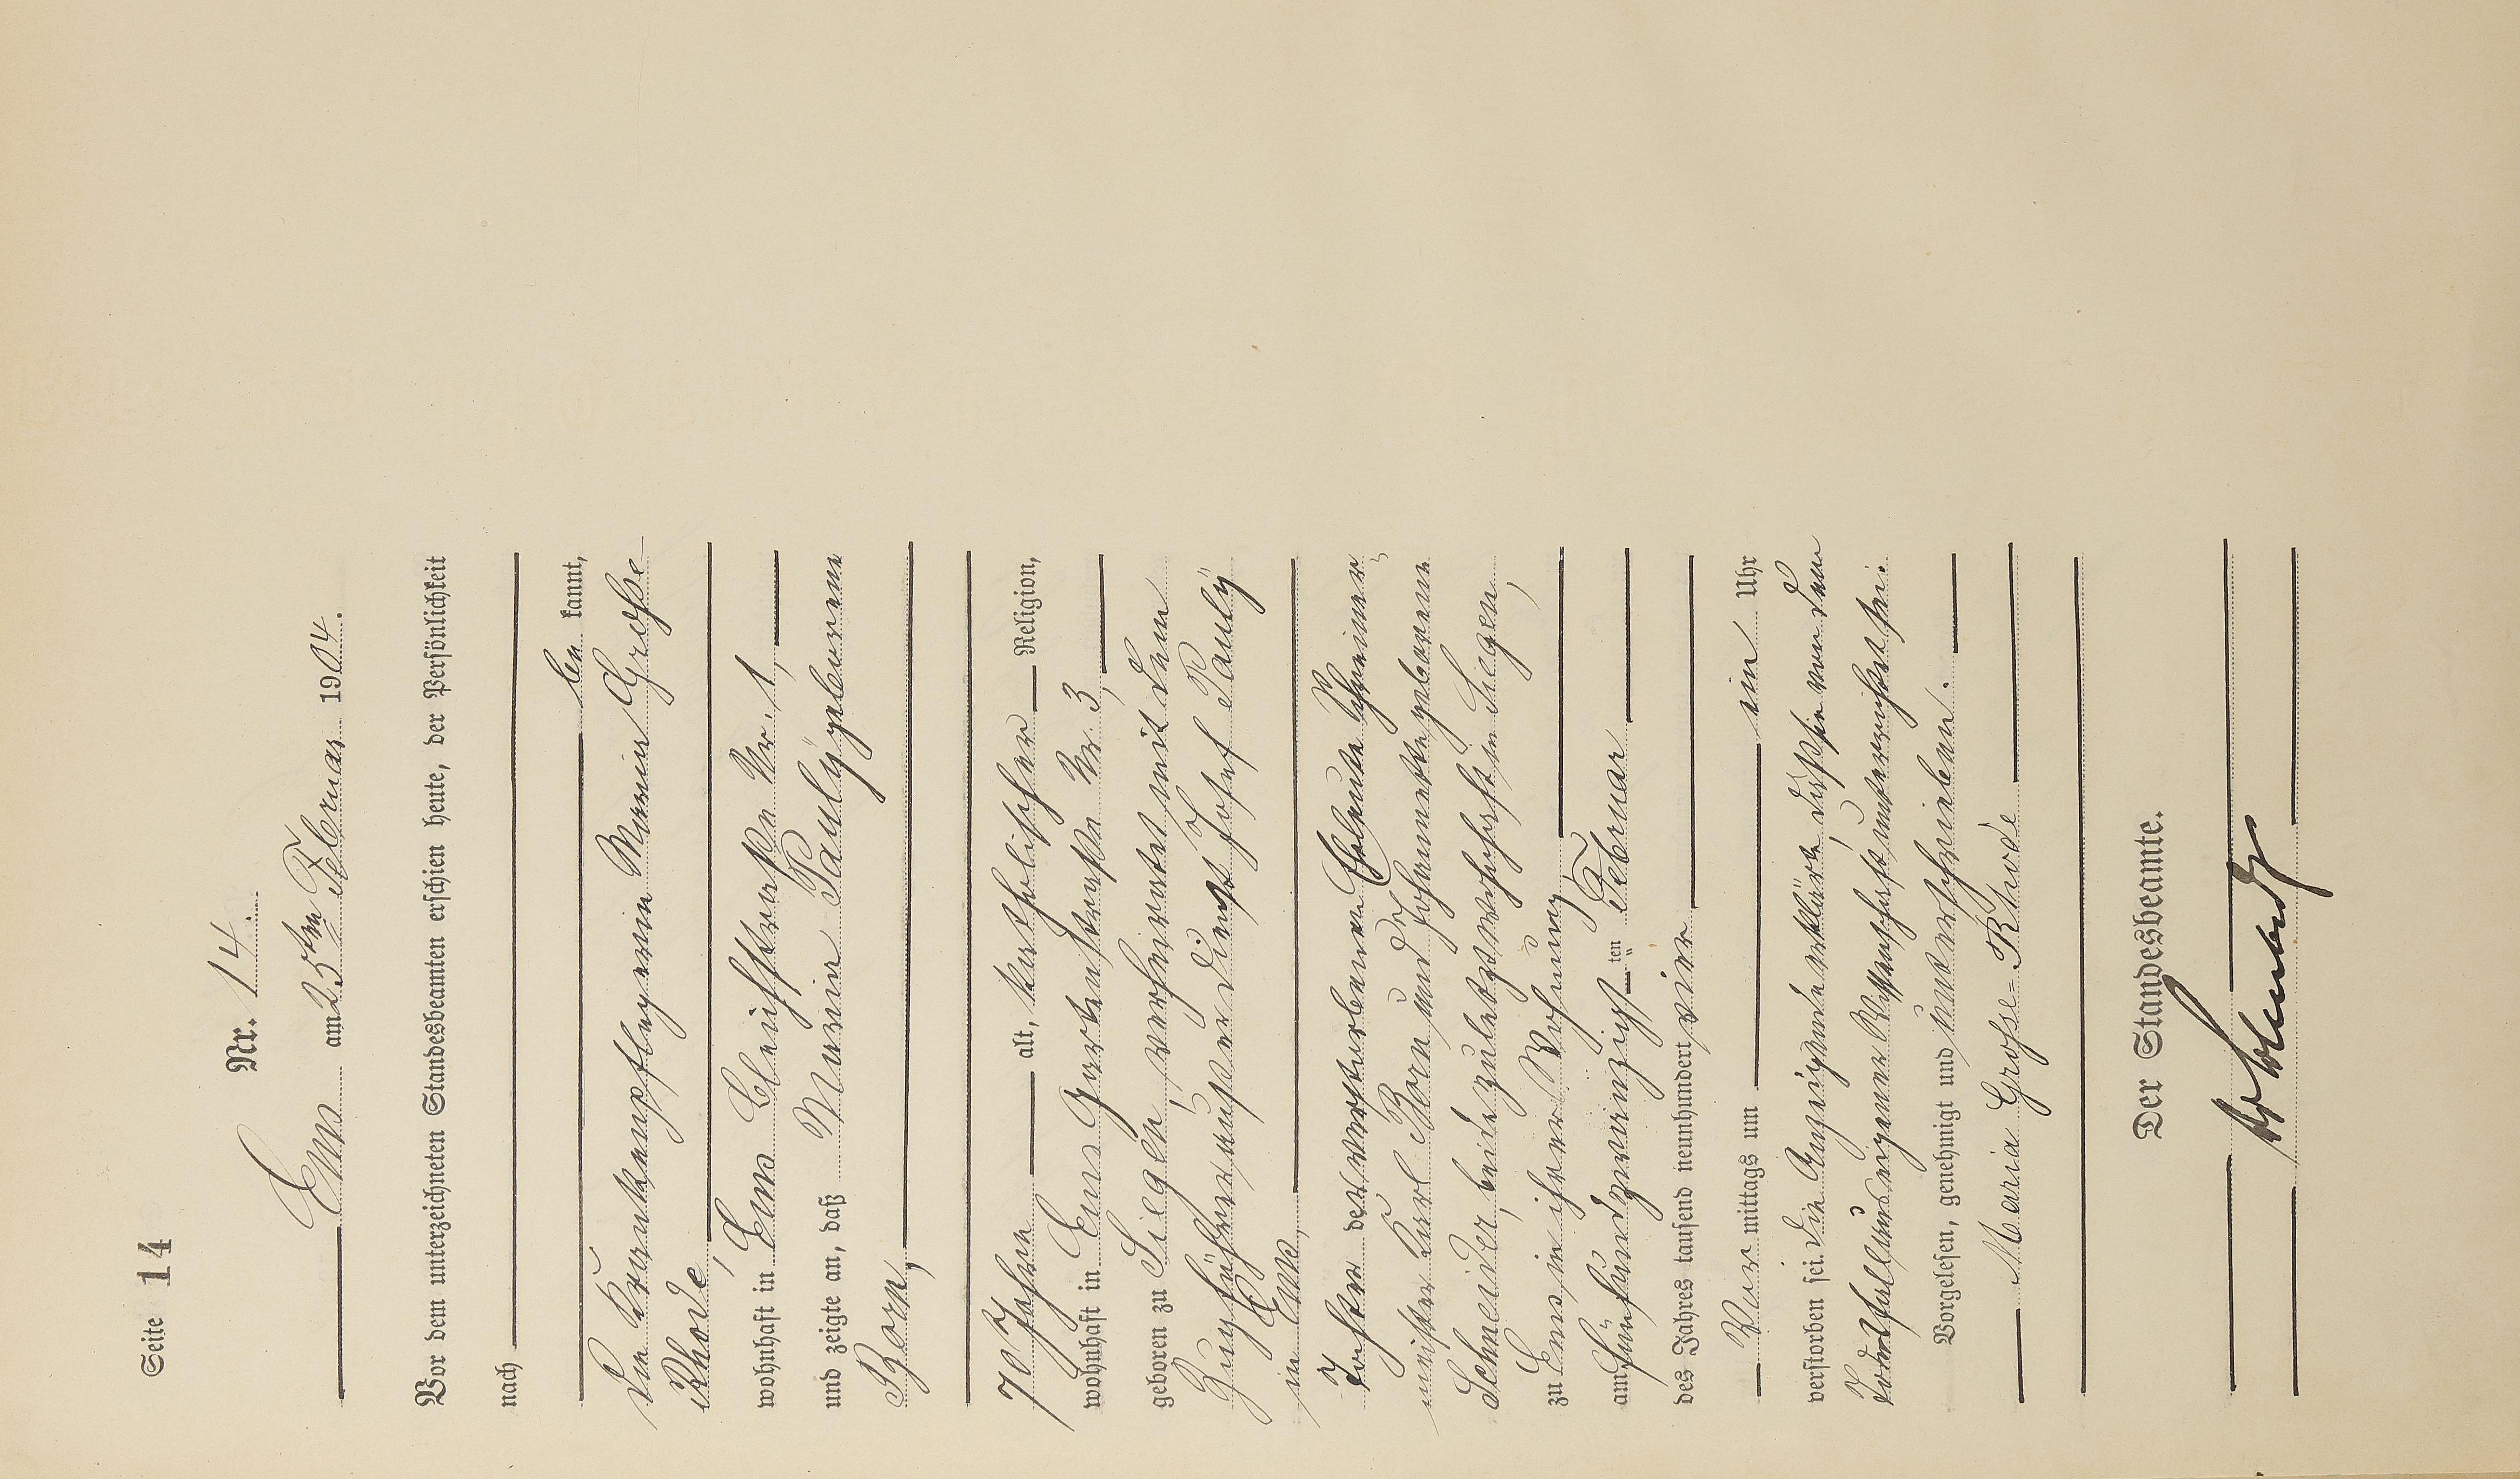 Seite 14
Nr. 14.
Ems am 25ten Februar 1904.
Vor dem unterzeichneten Standesbeamten erschien heute, der Persönlichkeit
nach
be kannt,
die Krankenpflegerin Maria Große
Rhode,
wohnhaft in Ems Bleichstraße Nr. 1,
und zeigte an, daß Maria Pauly geborene
Born,
70 Jahre alt, katholischer Religion,
wohnhaft in Ems Gartenstraße Nr. 3,
geboren zu Siegen, verheiratet mit dem
Zugführer außer Dienst Josef Pauly
in Ems,
Tochter der verstorbenen Eheleute Schreiner-
meister Karl Born und Johannette geborene
Schneider, beide zuletzt wohnhaft in Siegen,
zu Ems in ihrer Wohnung,
am fünfundzwanzigsten Februar
des Jahres tausend neunhundert vier
Vor mittags um ein Uhr
verstorben sei. Die Anzeigende erklärte, daß sie von dem
Todesfall aus eigener Wissenschaft unterrichtet sei.
Vorgelesen, genehmigt und unterschrieben.
Maria Große-Rhode
Der Standesbeamte.